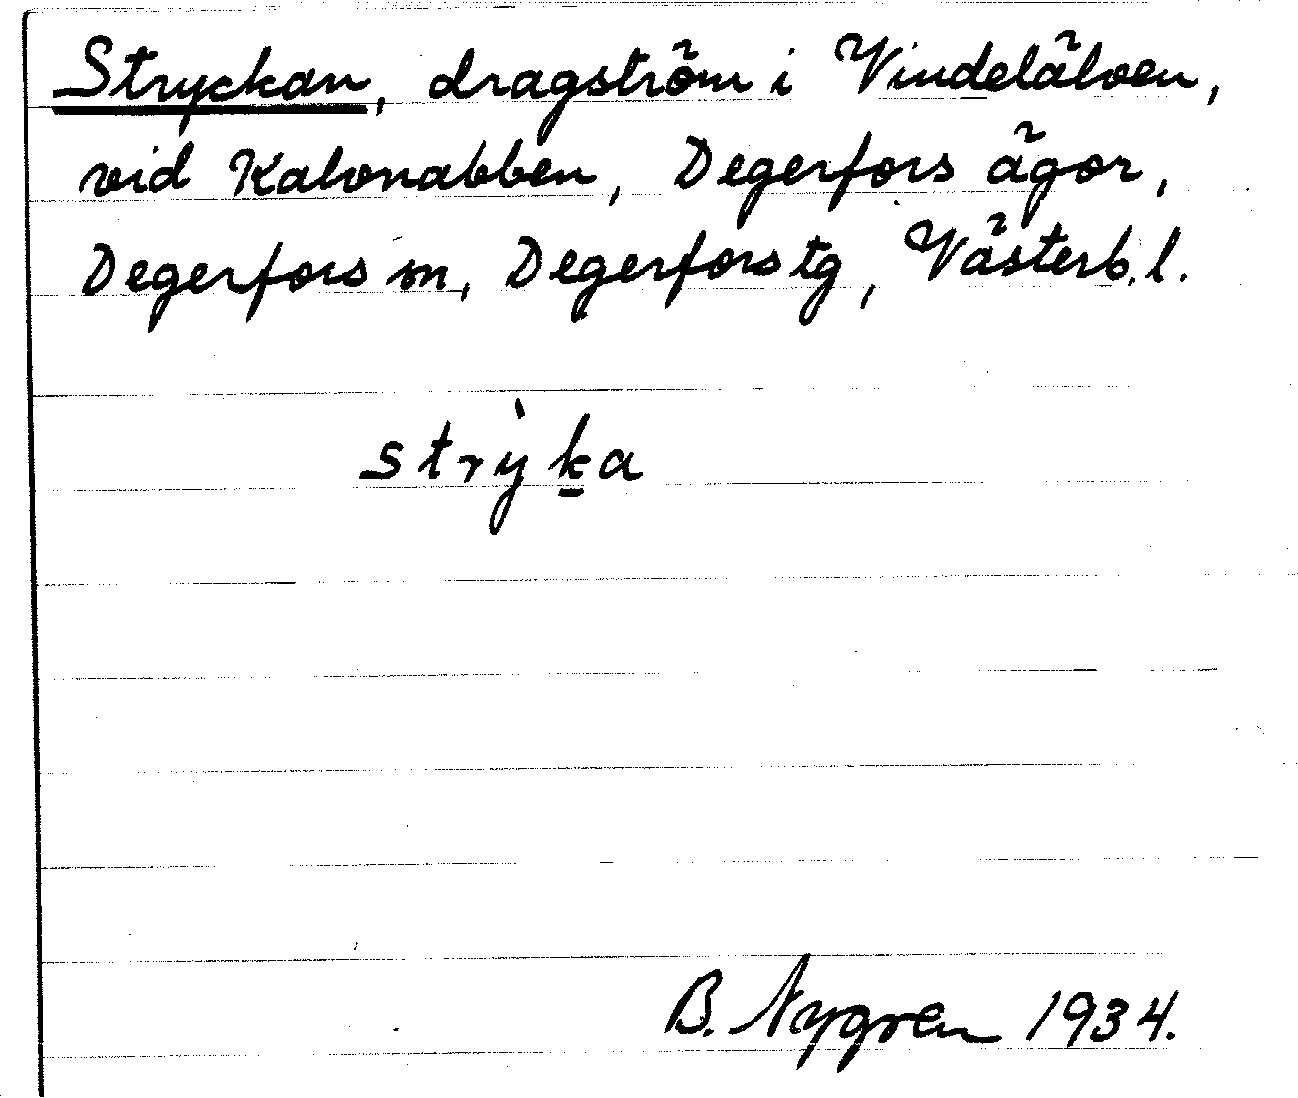 Stryckan, dragström i Vindelälven,
vid Kalvnabben, Degerfors ägor,
Degerfors sn, Degerfors tg, Västerb. l.
strỳk̲a
B. Nygren 1934.